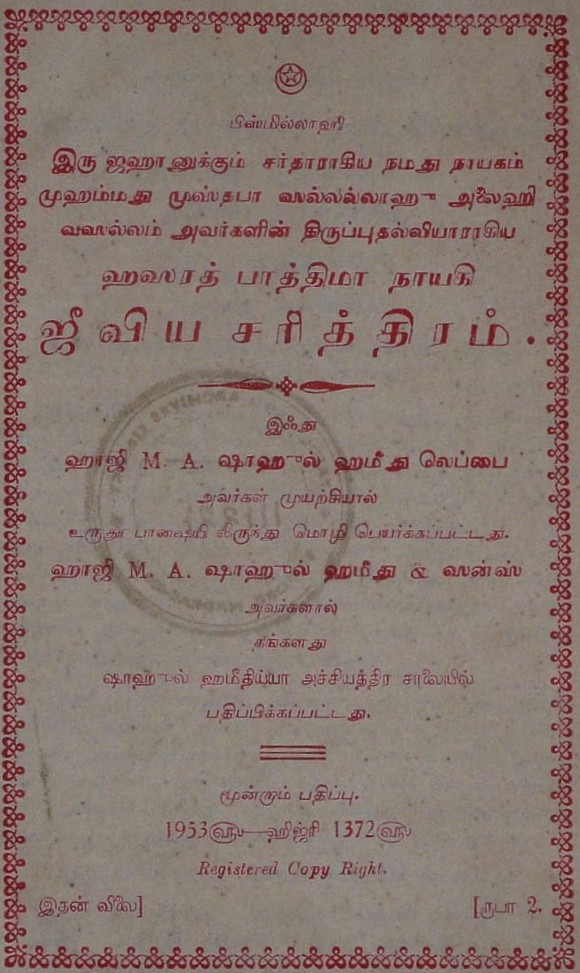 பிஸ்மில்லாஹி
இரு ஜஹானுக்கும் சர்தாராகிய நமது நாயகம்
முஹம்மது முஸ்தபா ஸல்லல்லாஹு அலைஹி
வஸல்லம் அவர்களின் திருப்புதல்வியாராகிய
ஹஸரத் பாத்திமா நாயகி
ஜீவிய சரித்திரம்.
இஃது
ஹாஜி M. A. ஷாஹுல் ஹமீது லெப்பை
அவர்கள் முயற்சியால்
உருது பாஷையி லிருந்து மொழி பெயர்க்கப்பட்டது.
ஹாஜி M. A. ஷாஹுல் ஹமீது & ஸன்ஸ்
அவர்களால்
தங்களது
ஷாஹுல் ஹமீதிய்யா அச்சியத்திர சாலையில்
பதிப்பிக்கப்பட்டது.
மூன்றும் பதிப்பு.
1953௵—ஹிஜ்ரி 1372௵
Registered Copy Right.
இதன் விலை] [ரூபா 2.